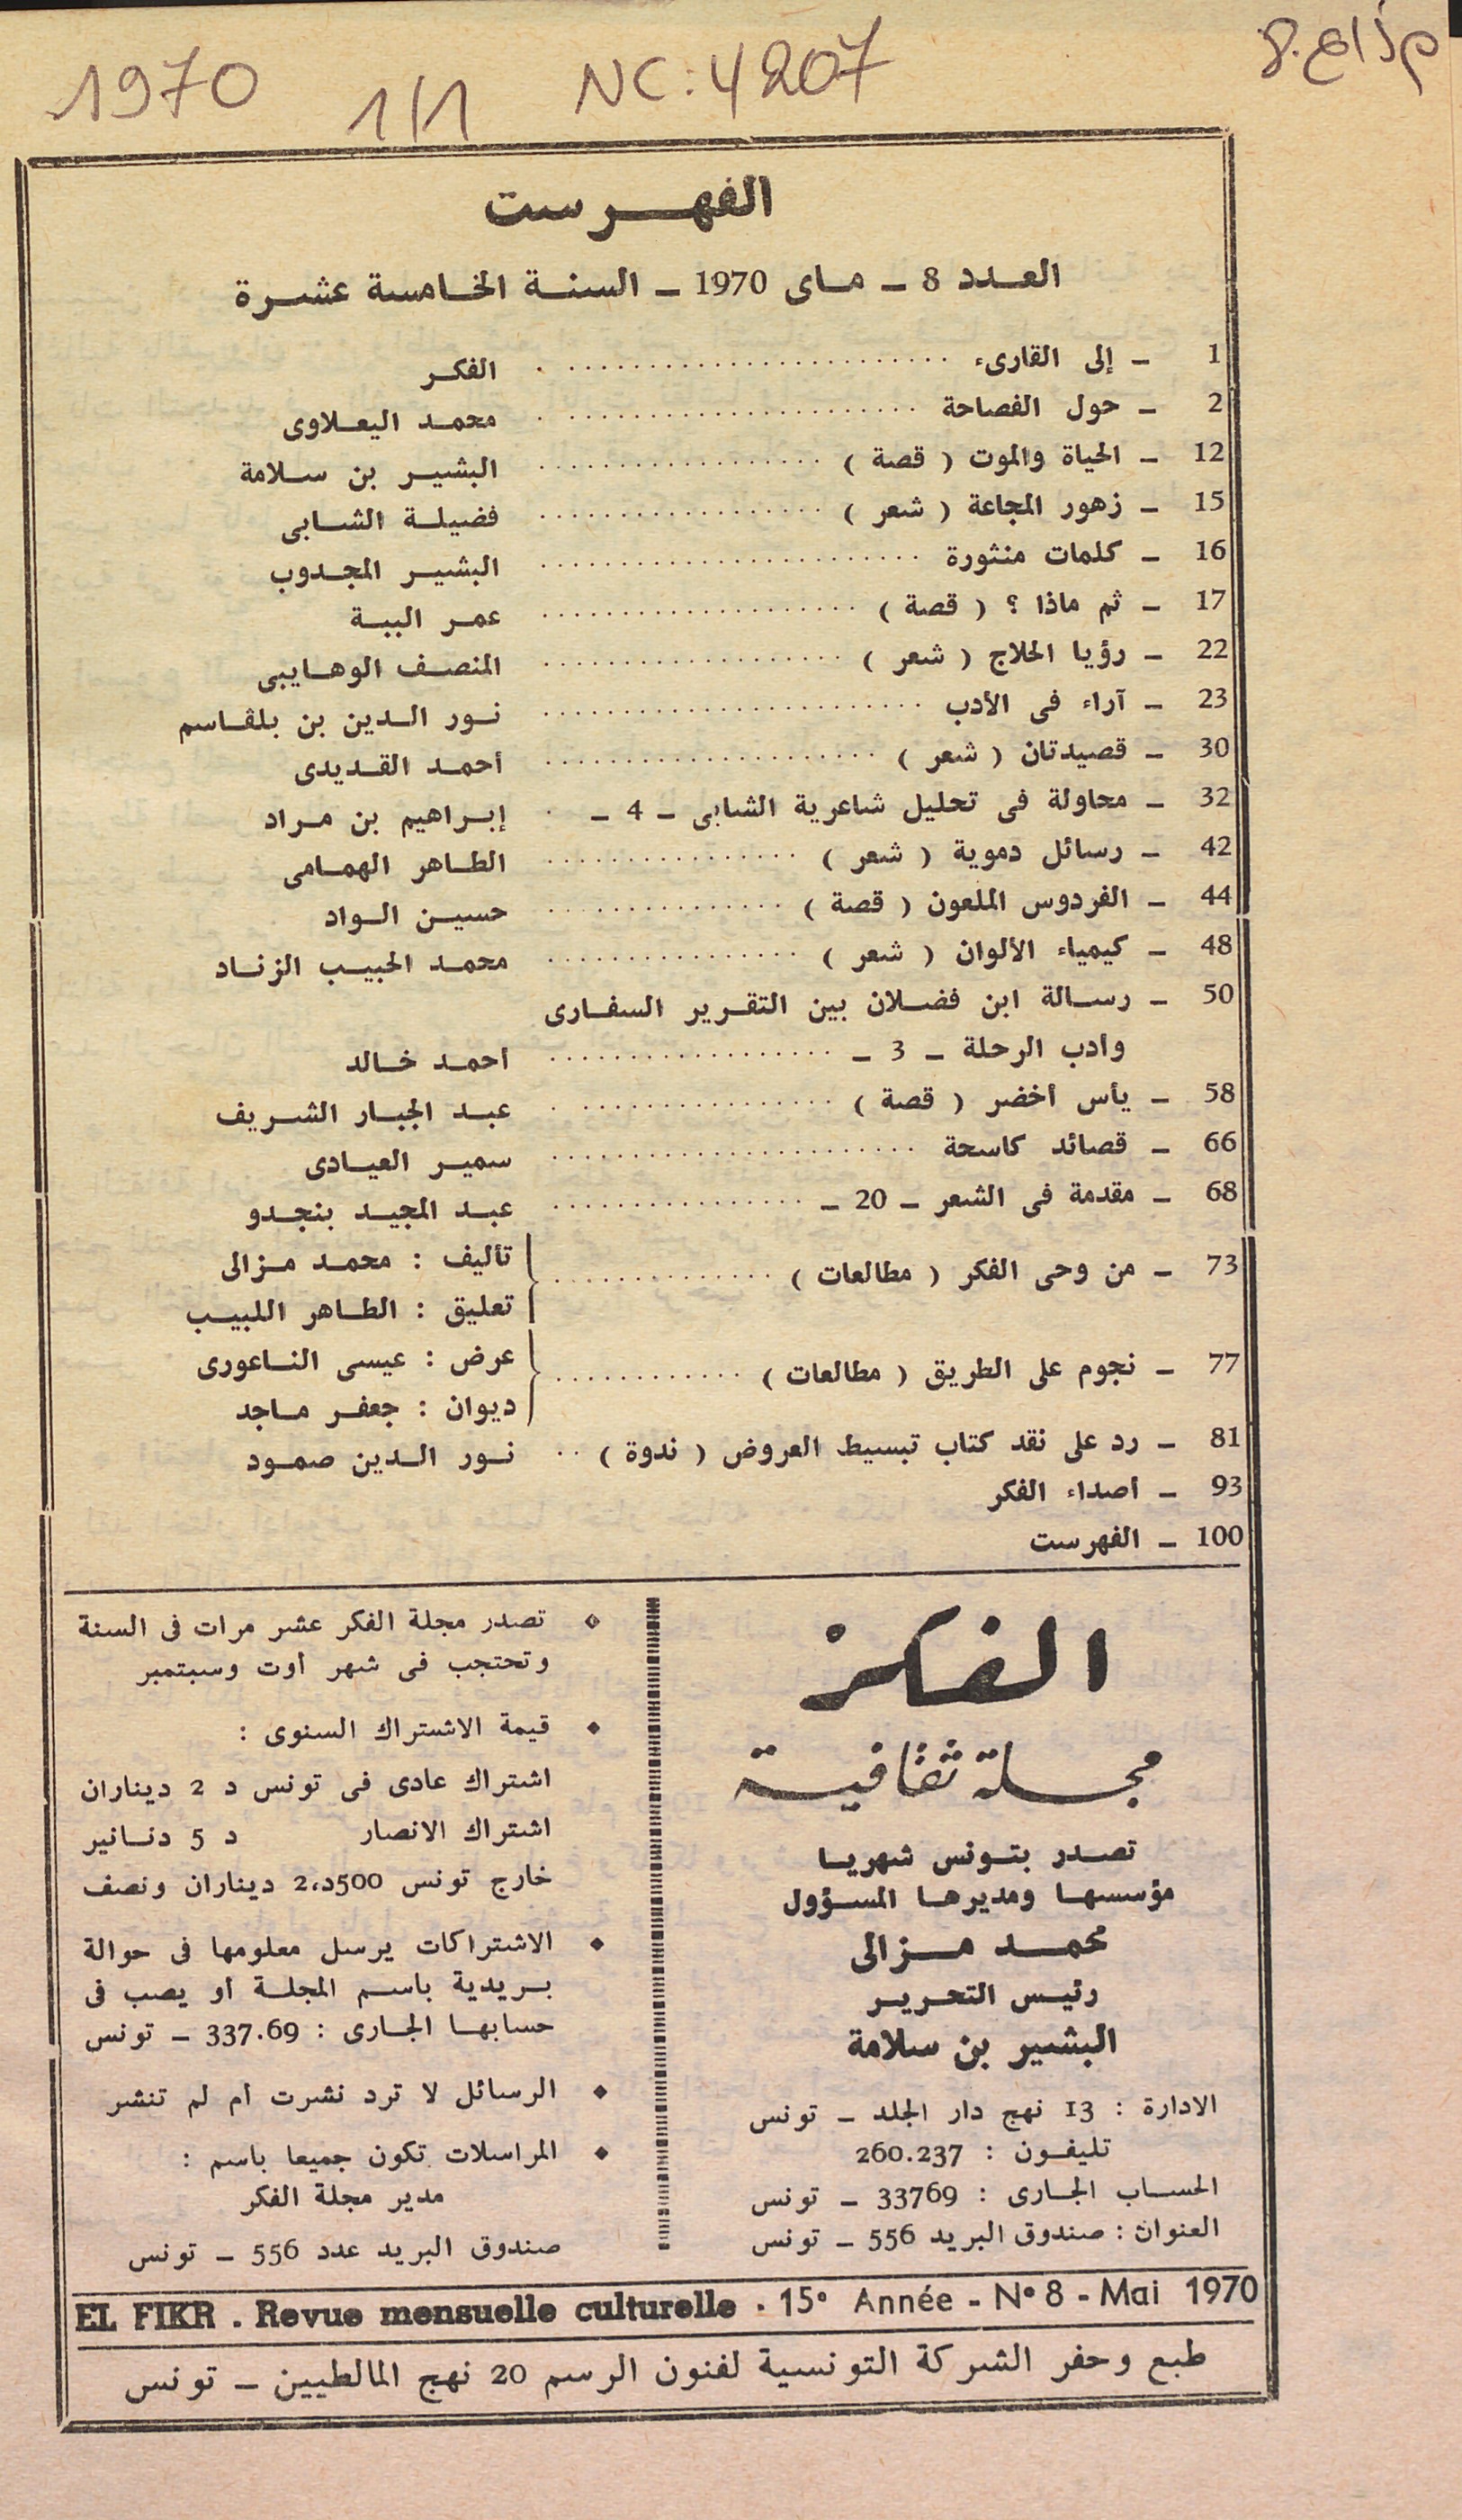 1970
1/1
NC: 4207
الفهرست
العدد 8 ـ ماى 1970 ـ السنة الخامسة عشرة
1 ـ إلى القارىء . . . . . الفكر
2 ـ حول الفصاحة . . . . . محمد اليعلاوى
12 ـ الحياة والموت ( قصة ) . . . . . البشير بن سلامة
15 ـ زهور المجاعة ( شعر ) . . . . . فضيلة الشابى
16 ـ كلمات منثورة . . . . . البشير المجدوب
17 ـ ثم ماذا ؟ ( قصة ) . . . . . عمر الببة
22 ـ رؤيا الحلاج ( شعر ) . . . . . المنصف الوهايبى
23 ـ آراء فى الأدب . . . . . نور الدين بن بلقاسم
30 ـ قصيدتان ( شعر ) . . . . . أحمد القديدى
32 ـ محاولة فى تحليل شاعرية الشابى ـ 4 ـ . إبراهيم بن مراد
42 ـ رسائل دموية ( شعر ) . . . . . الطاهر الهمامى
44 ـ الفردوس الملعون ( قصة ) . . . . . حسين الواد
48 ـ كيمياء الألوان ( شعر ) . . . . . محمد الحبيب الزناد
50 ـ رسالة ابن فضلان بين التقرير السفارى
وأدب الرحلة ـ 3 ـ . . . . . أحمد خالد
58 ـ يأس أخضر ( قصة ) . . . . . عبد الجبار الشريف
66 ـ قصائد كاسحة . . . . . سمير العيادى
68 ـ مقدمة فى الشعر ـ 20 ـ . . . . . عبد المجيد بنجدو
73 ـ من وحى الفكر ( مطالعات ) . . . . . تأليف : محمد مزالى
تعليق : الطاهر اللبيب
77 ـ نجوم على الطريق ( مطالعات ) . . . . . عرض : عيسى الناعورى
ديوان : جعفر ماجد
81 ـ رد على نقد كتاب تبسيط العروض ( ندوة ) . . نور الدين صمود
93 ـ أصداء الفكر
100 ـ الفهرست
الفكر
مجلة ثقافية
تصدر بتونس شهريا
مؤسسها ومديرها المسؤول
محمد مزالى
رئيس التحرير
البشير بن سلامة
الادارة : 13 نهج دار الجلد ـ تونس
تليفون : 260.237
الحساب الجارى : 33769 ـ تونس
العنوان : صندوق البريد 556 ـ تونس
◆ تصدر مجلة الفكر عشر مرات فى السنة
وتحتجب فى شهر أوت وسبتمبر
◆ قيمة الاشتراك السنوى :
اشتراك عادى فى تونس د 2 ديناران
اشتراك الانصار د 5 دنانير
خارج تونس 500د،2 ديناران ونصف
◆ الاشتراكات يرسل معلومها فى حوالة
بريدية باسم المجلة أو يصب فى
حسابها الجارى : 337.69 ـ تونس
◆ الرسائل لا ترد نشرت أم لم تنشر
◆ المراسلات تكون جميعا باسم :
مدير مجلة الفكر
صندوق البريد عدد 556 ـ تونس
EL FIKR . Revue mensuelle culturelle . 15° Année - N° 8 - Mai 1970
طبع وحفر الشركة التونسية لفنون الرسم 20 نهج المالطيين ـ تونس